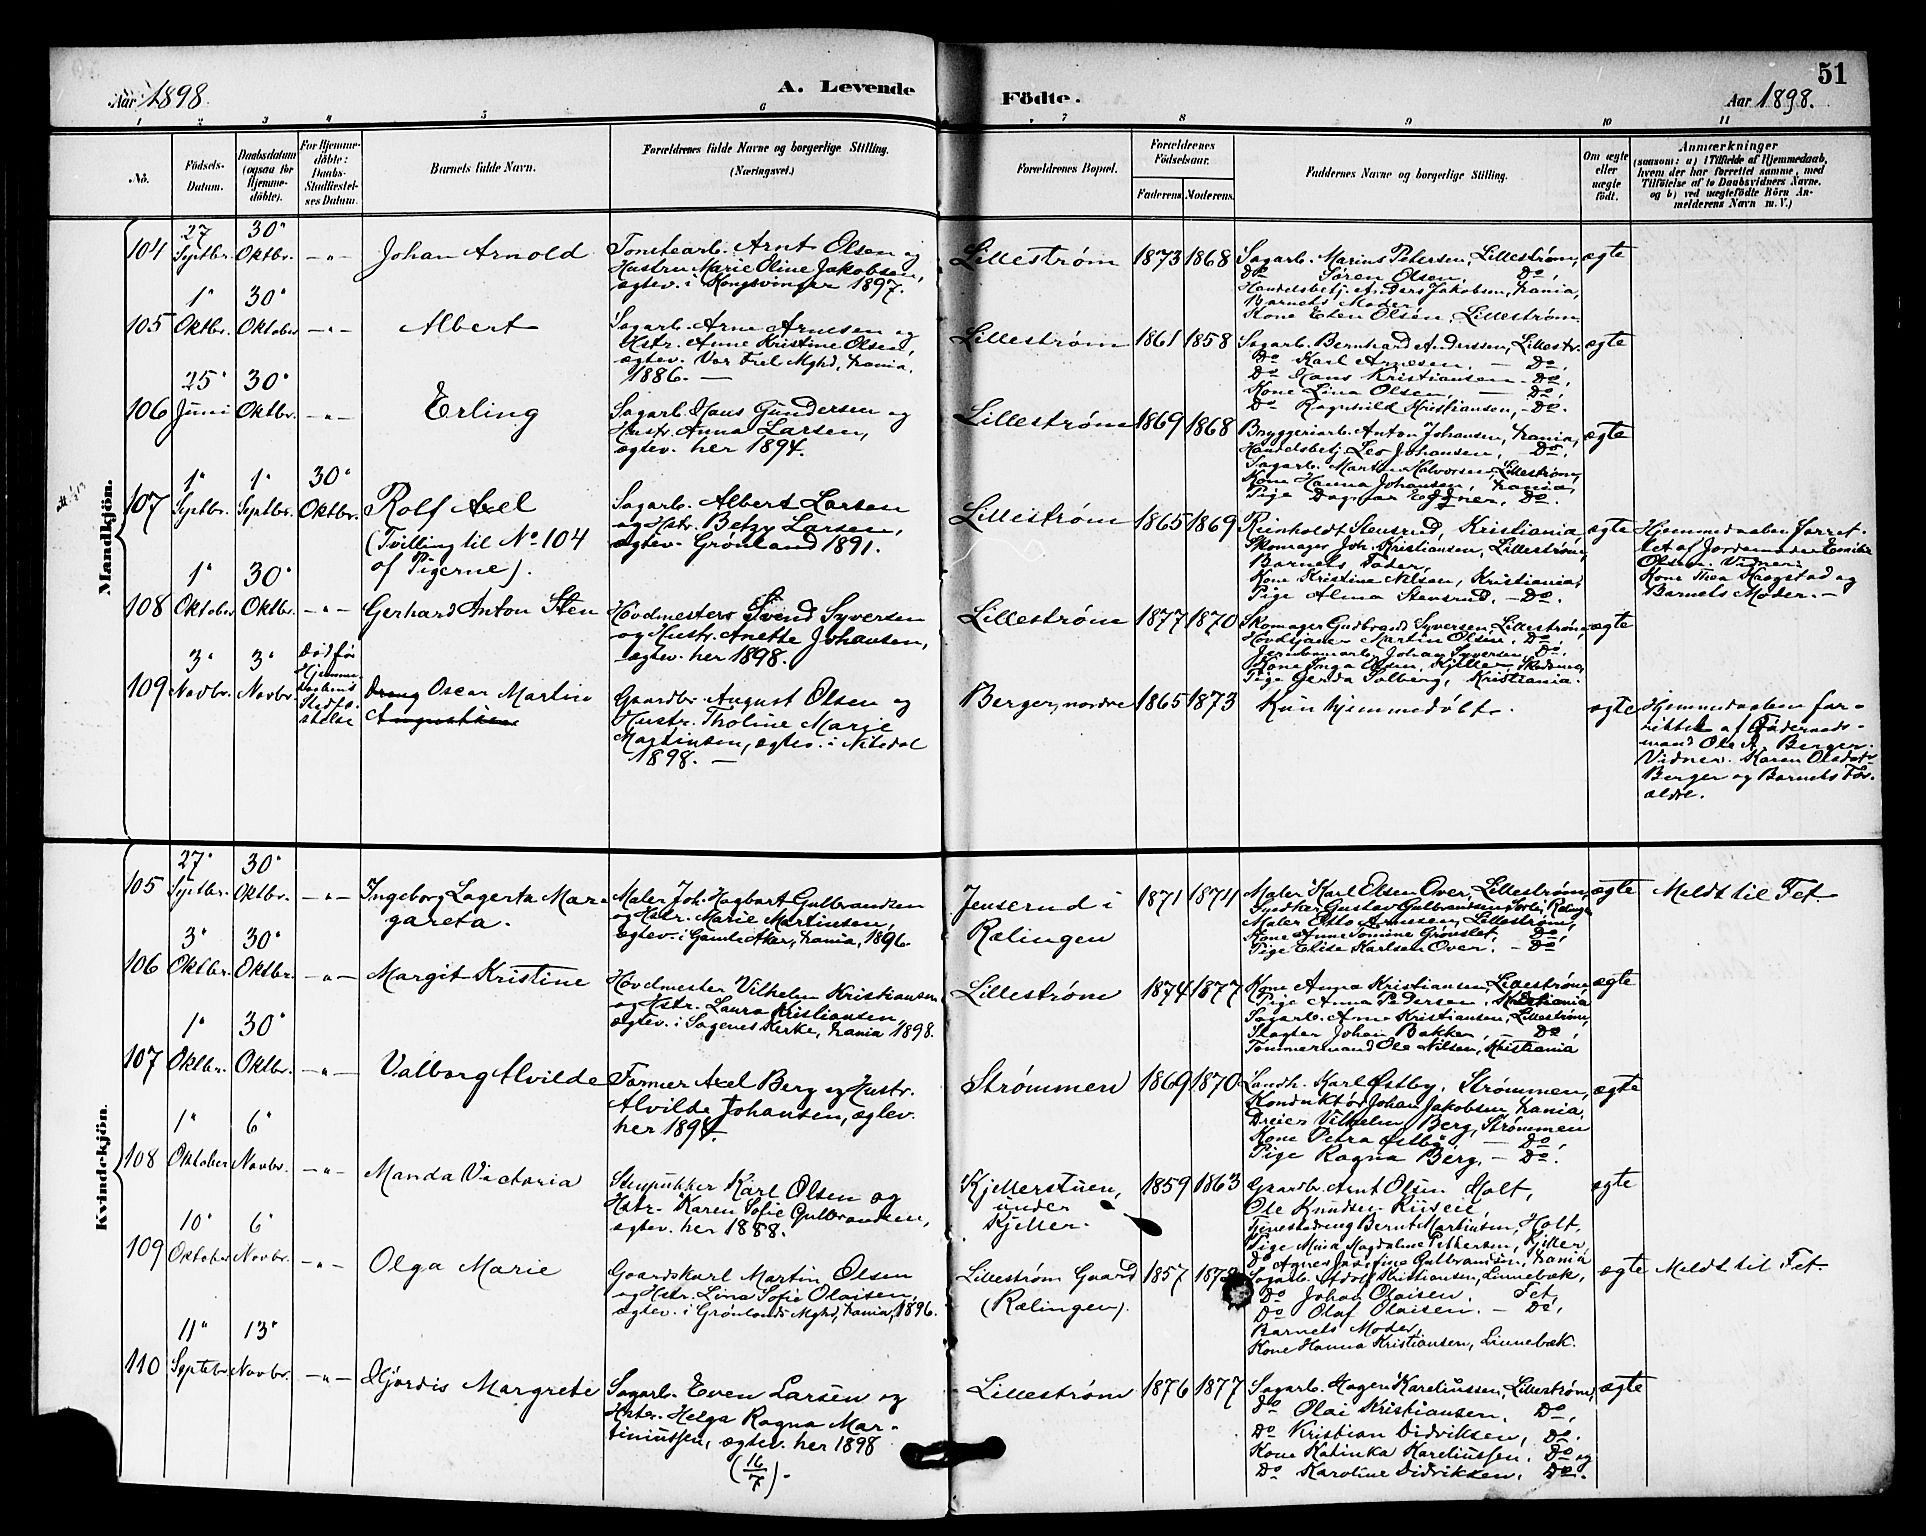 Aar 1898.
A. Levende Födte.
51
Aar 1898.
1 2 3 4 5 6 7 8 9 10 11
No.
Födsels-Datum.
Daabsdatum (ogsaa for Hjemme-döbte).
For Hjemme-döbte: Daabs-Stadfæstel-ses Datum.
Barnets fulde Navn.
Forældrenes fulde Navne og borgerlige Stilling. (Næringsvei.)
Forældrenes Bopæl.
Forældrenes Födselsaar.
Faderens. Moderens.
Faddernes Navne og borgerlige Stilling.
Om ægte eller uægte födt.
Anmærkninger
(saasom: a) i Tilfælde af Hjemmedaab, hvem der har forrettet samme, med Tilföielse af to Daabsvidners Navne, og b) ved uægtefödte Börn Anmelderens Navn m. V.)
Mandkjön.
104 27 Septbr. 30 Oktbr. -"- Johan Arnold
Tomtearb. Arnt Olsen og
Hustru Marie Oline Jakobsen,
ægtev. i Kongsvinger 1897.
Lillestrøm 1873 1868
Sagarb. Marius Petersen, Lillestrøm,
Do Søren Olsen, Do,
Handelsbetj. Anders Jakobsen, Krania,
Barnets Moder,
Kone Elen Olsen, Lillestrøm.
ægte
105 1 Oktbr. 30 Oktober -"- Albert
Sagarb. Arne Arnesen og
Hstr. Anne Kristine Olsen,
ægtev. Vor Frel. Mghd, Krania,
1886. —
Lillestrøm 1861 1858
Sagarb. Bernhard Andersen, Lillestr.
Do Karl Arnesen. — Do,
Do Hans Kristiansen — Do,
Kone Lina Olsen, — Do,
Do Ragnhild Kristiansen, — Do.
ægte
106 25 Juni 30 Oktbr. -"- Erling
Sagarb. Hans Gundersen og
Hustr. Anna Larsen,
ægtev. her 1894.
Lillestrøm 1869 1868
Bryggeriarb. Anton Johansen, Krania,
Handelsbetj. Leo Johansen, — Do,
Sagarb. Martin Halvorsen Lillestrøm,
Kone Hanna Johansen, Krania,
Pige Dagmar Eggner, Do.
ægte
107 1 Septbr. 1 Septbr. 30 Oktbr. Rolf Axel
(Tvilling til No 104
af Pigerne).
Sagarb. Albert Larsen
og Hstr. Betzy Larsen,
ægtev. Grønland 1891.
Lillestrøm 1865 1869
Reinholdt Stensrud, Kristiania
Skomager Joh. Kristiansen, Lillestrøm,
Barnets Fader,
Kone Kristine Nilsen, Kristiania,
Pige Alma Stensrud. — Do.
ægte
Hjemmedaaben forret-
tet af Jordemoder Emilie
Olsen. Vidner:
Kone Thea Haagstad og
Barnets Moder. —
108 1 Oktober 30 Oktbr. -"- Gerhard Anton Sten
Høvdmester Svend Syversen
og Hustr. Anette Johansen,
ægtev. her 1898.
Lillestrøm 1877 1870
Skomager Gudbrand Syversen Lillestrøm,
Martin Olsen, Do,
Johan Syversen, Do,
Kone Inga Olsen, Kjeller, Skedsmo
Pige Gerda Solberg, Kristiania.
ægte
109 3 Novbr. 3 Novbr. Død før
Hjemme-
daabens
Stadfæ-
stelse
Oscar Martin
Gaardbr. August Olsen og
Hustr. Tholine Marie
Martinsen, ægtev. i Nitedal
1898. —
Berger, nordre 1865 1873
Kun hjemmedøbt.
ægte
Hjemmedaaben for-
rettet af
mand Ole A. Berger.
Vidner. Karen Olsdatr
Berger og Barnets For-
ældre.
Kvindekjön.
105 27 Septbr. 30 Oktbr. -"- Ingeborg Lagerta Mar-
gareta.
Maler Joh. Hagbart Gulbrandsen
og Hstr. Marie Martinsen,
ægtev. i Gamle Aker, Krania, 1896.
Jenserud i
Rælingen
1871 1874
Maler Karl Olsen Over, Lillestrøm,
Gustav Gulbrandsen,
Maler Otto Arnesen, Lillestrøm,
Kone Anne Grønslet, Do,
Pige Elise Karlsen Over. — Do.
ægte
Meldt til Fet.
106 3 Oktbr. 30 Oktbr. -"- Margit Kristine
Høvdmester Vilhelm Kristiansen
og Hstr. Laura Kristiansen,
ægtev. i Sagenes Kirke, Krania 1898.
Lillestrøm 1874 1877
Kone Anna Kristiansen, Lillestrøm,
Pige Anna Pedersen, Kristiania
Sagarb. Arne Kristiansen, Lillestrøm,
Slagter Johan Bakken, Do,
Tømmermand Ole Nilsen, Kristiania
ægte
107 1 Oktbr. 30 Oktbr. -"- Valborg Alvilde
Former Axel Berg og Hustr.
Alvilde Johansen, ægtev.
her 1894.
Strømmen 1869 1870
Landh. Karl Østby, Strømmen,
Konduktør Johan Jakobsen, Krania,
Dreier Vilhelm Berg, Strømmen
Kone Petra Østby — Do,
Pige Ragna Berg, — Do.
ægte
108 1 Oktober 6 Novbr. -"- Manda Victoria
Stenpukker Karl Olsen og
Hstr. Karen Sofie Gulbrandsen,
ægtev. her 1888.
Kjellerstuen,
under
Kjeller.
1859 1863
Gaardbr. Arnt Olsen Holt,
Ole Knudsen
Tjenestedreng Bernt Martinsen, Holt,
Pige Mina Magdaline Pettersen, Kjeller,
Do Agnes Josefine Gulbrandsen, Krania
ægte
109 10 Oktober 6 Novbr. -"- Olga Marie
Gaardskarl Martin Olsen
og Hstr. Lina Sofie Olaisen,
ægtev. i Grønlands Mghd, Krania, 1896.
Lillestrøm Gaard
(Rælingen).
1857
Sagarb. Adolf Kristiansen, Linnebæk,
Do Johan Olaisen, Fet,
Do Olaf Olaisen. — Do,
Barnets Moder,
Kone Hanna Kristiansen, Linnebæk.
ægte
Meldt til Fet.
110 11 Septbr. 13 Novbr. -"- Hjørdis Margrete
Sagarb. Even Larsen og
Hstr. Helga Ragna Mar-
tiniussen, ægtev. her 1898
(16/7).
Lillestrøm 1876 1877
Sagarb. Hagen Kareliussen, Lillestrøm,
Do Olai Kristiansen. Do,
Do Kristian Didriksen, Do.
Kone Katinka Kareliussen. Do og
Do Karoline Didriksen. Do.
ægte